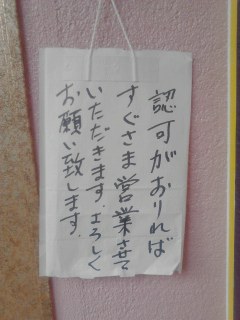 認可がおりれば
すぐさま営業させて
いただきます.よろしく
お願い致します.